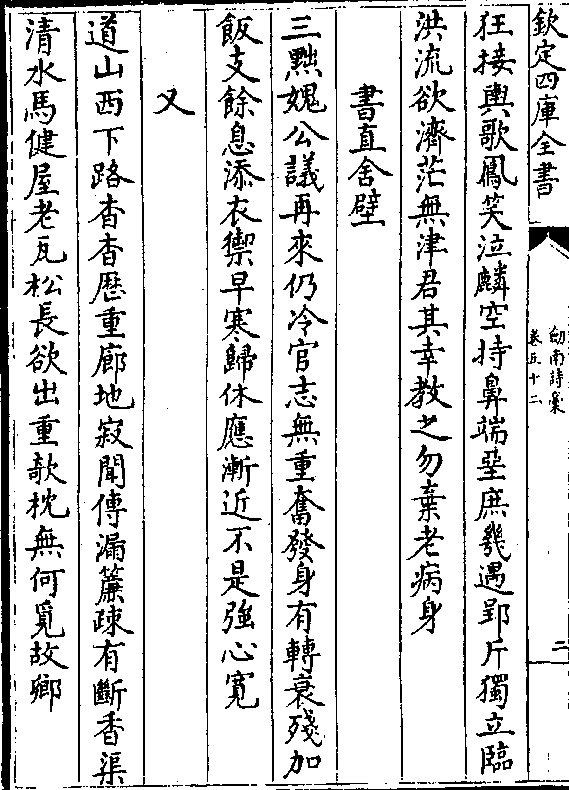 欽定四庫全書
劒南詩藁
卷五十二
二
狂接輿歌鳳笑泣麟空持鼻端堊庶幾遇郢斤獨立臨
洪流欲濟茫無津君其幸教之勿棄老病身
書直舍壁
三黜媿公議再來仍冷官志無重奮發身有轉衰殘加
飯支餘息添衣禦早寒歸休應漸近不是強心寛
又
道山西下路杳杳歴重廊地寂聞傳漏簾疎有斷香渠
清水馬健屋老瓦松長欲出重欹枕無何覓故鄉